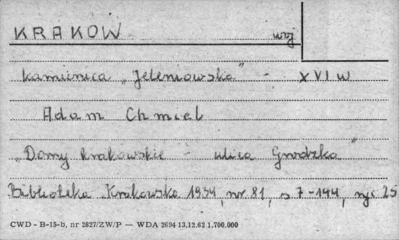 KRAKÓW woj
kamienica „Jeleniowska" - XVI w
Adam Chmiel
„Domy krakowskie - ulica Grodzka"
Biblioteka Krakowska 1934, nr 81, s 7-144, ryc 25
CWD - B-15-b, nr 2827/ZW/P — WDA 2694 13.12.62 1.700.000